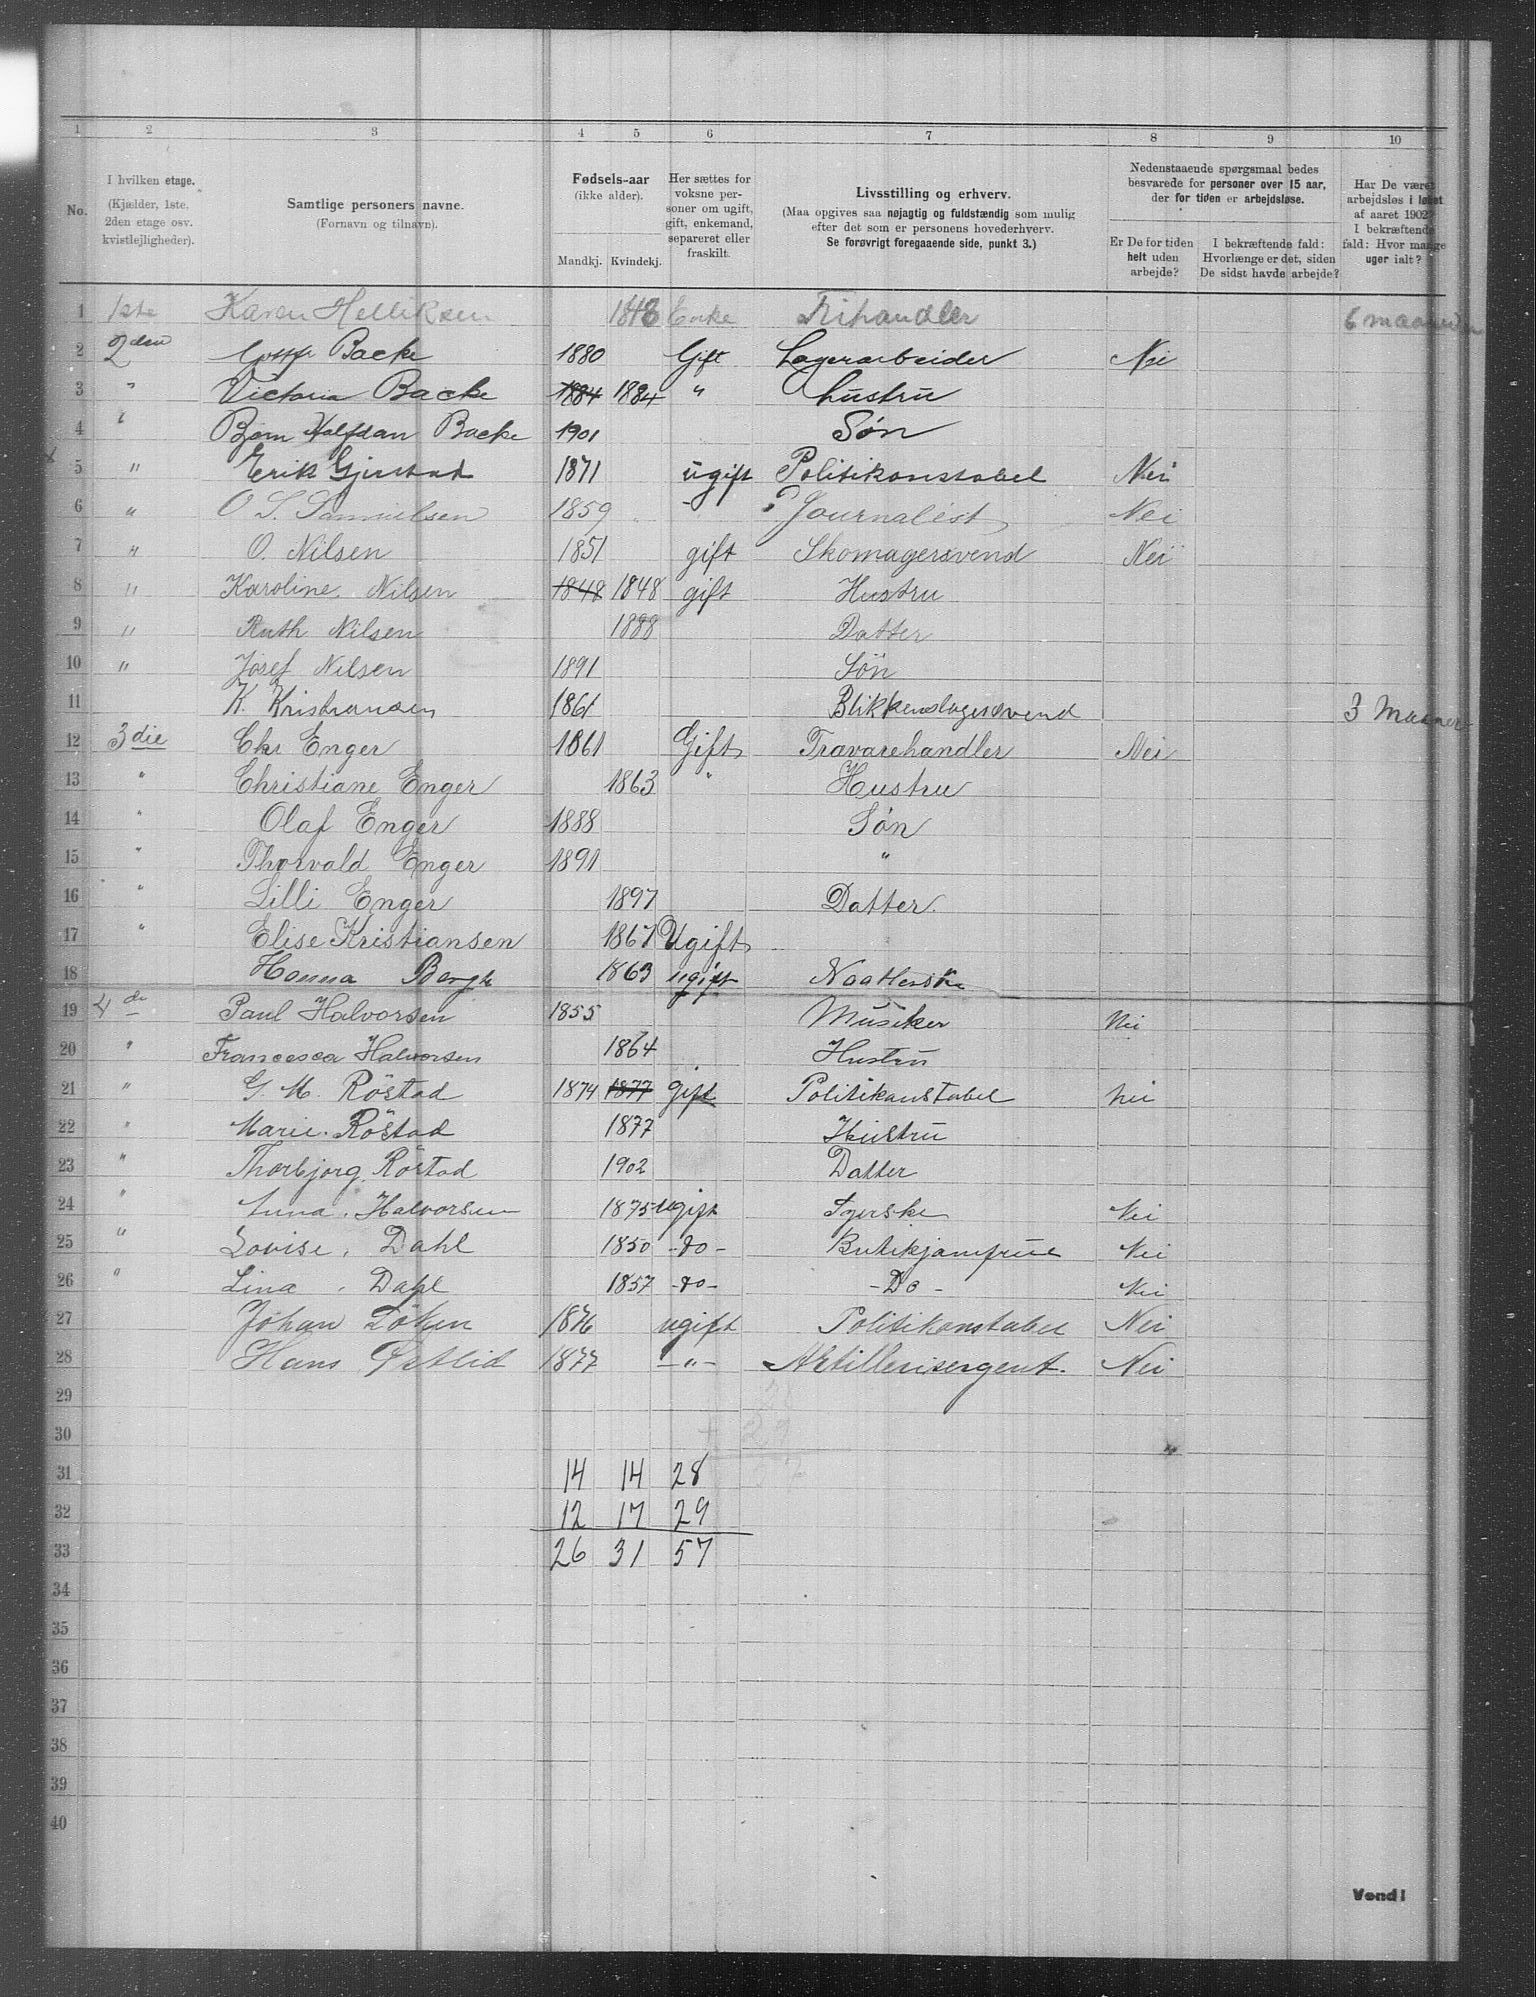 1 2 3 4 5 6 7 8 9 10
No.
I hvilken etage. (Kjælder, 1ste, 2den etage osv. kvistlejligheder).
Samtlige personers navne. (Fornavn og tilnavn).
Fødsels-aar (ikke alder).
Mandkj. Kvindekj.
Her sættes for voksne personer om ugift, gift, enkemand, separeret eller fraskilt.
Livsstilling og erhverv.
(Maa opgives saa nøjagtig og fuldstændig som mulig efter det som er personens hovederhverv.
Se forøvrigt foregaaende side, punkt 3.)
Nedenstaaende spørgsmaal bedes besvarede for personer over 15 aar, der for tiden er arbejdsløse.
Er De for tiden helt uden arbejde?
I bekræftende fald: Hvorlænge er det, siden De sidst havde arbejde?
Har De været arbejdsløs i løbet af aaret 1902? I bekræftende fald: Hvor mange uger ialt?
1 1ste Karen Helliksen 1848 Enke 6 maaneder
2 2den Backe 1880 Gift Lagerarbeider Nei
3 " Victoria Backe 1884 1884 " hustru
4 " Bjørn Halfdan Backe 1901 Søn
5 " Erik Gjerstad 1871 ugift Politikonstabel Nei
6 " O S. Samuelsen 1859 ? Journalist Nei
7 " O. Nilsen 1851 gift Skomagersvend Nei
8 " Karoline Nilsen 1848 1848 gift Hustru
9 " Ruth Nilsen 1888 Datter
10 " Josef Nilsen 1891 Søn
11 K. Kristiansen 1861 Blikkenslagersvend 3 Maaner
12 3die Chr Enger 1861 Gift Travarehandler Nei
13 " Christiane Enger 1863 " Hustru
14 " Olaf Enger 1888 Søn
15 " Thorvald Enger 1891 "
16 " Lilli Enger 1897 Datter.
17 " Elise Kristiansen 1867 Ugift
18 Hanna Bergh 1863 ugift Naatlerske
19 4de Paul Halvorsen 1855 Musiker Nei
20 " Francesca Halvorsen 1864 Hustru
21 " G. M. Röstad 1874 1877 gift Politikonstabel Nei
22 " Marie Röstad 1877 Hustru
23 " Thorbjorg Röstad 1902 Datter
24 " Anna Halvorsen 1875 ugift Syerske Nei
25 " Lovise Dahl 1850 -do- Butikjomfrue Nei
26 " Lina Dahl 1857 -do- -Do- Nei
27 Johan Löken 1876 ugift Politikonstabel Nei
28 Hans Østlid 1877 -"- Artillerisergent. Nei
29
30
31 14 14 28
32 12 17 29
33 26 31 57
34
35
36
37
38
39
40
Vend!